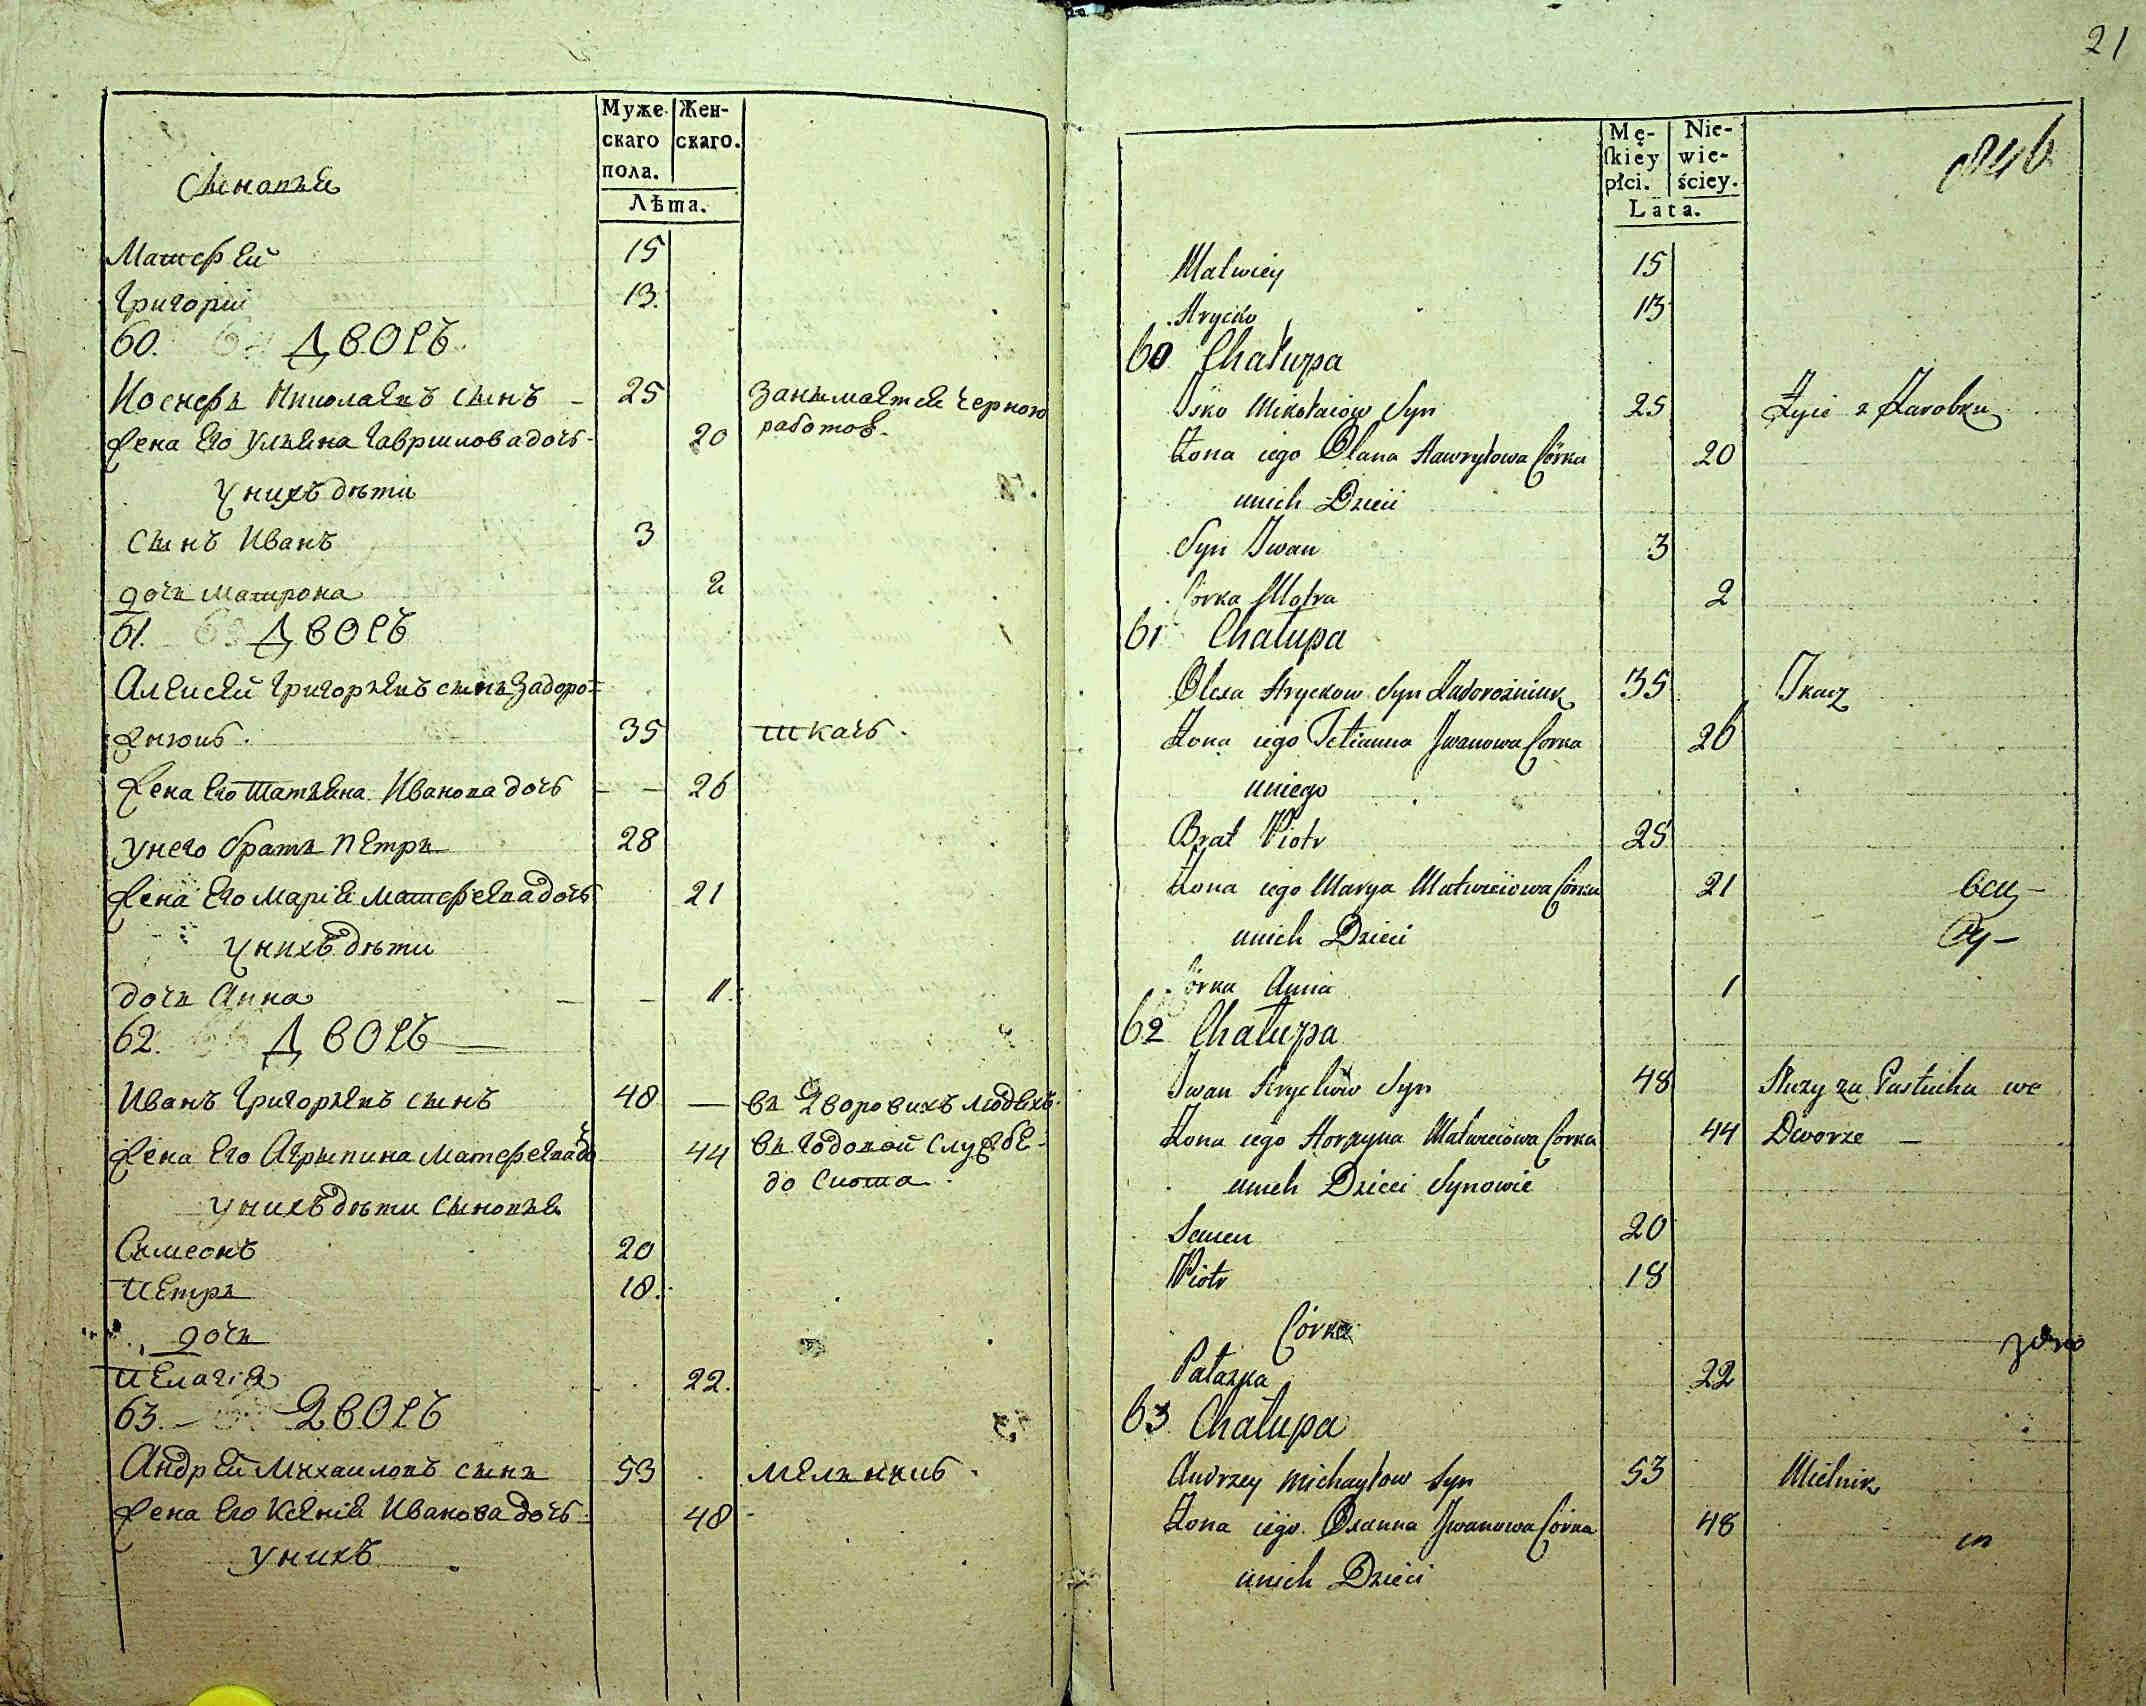 Муже-
скаго
пола.
Жен-
скаго.
Лѣта.
Сыновья
Матфѣй 15
Григорій 13.
60. ДВОРЪ
Иосифъ Николаевъ сынъ – 25 занимается черною
жена его Ульяна Гаврилова дочь – 20 работою.
у нихъ дѣти
сынъ Иванъ 3
дочь Матрона 2
61. ДВОРЪ
Алексѣй Григорьевъ сынъ Задоро=
жнюкъ. 35 ткачъ.
жена его Татьяна Иванова дочь – – 26
у него братъ Петръ 28
жена его Марія Матфеева дочь 21
у нихъ дѣти
дочь Анна – – 1.
62. ДВОРЪ
Иванъ Григорьевъ сынъ 48 – въ дворовихъ людѣхъ
жена его Агрыпина Матфеева до 44 въ годовой службе
у нихъ дѣти сыновья до скота.
Симеонъ 20
Петръ 18.
дочь
Пелагія 22.
63. – ДВОРЪ
Андрѣй Михаиловъ сынъ 53 мельникъ.
жена его Ксенія Иванова дочь. 48
у нихъ
21
Mę-
skiey
płci.
Nie-
wie-
ściey.
Lata.
Matwiey 15
Hrycko 13
60 Chałupa
Jsko Mikołaiow Syn 25 Żyie z Zarobku
Żona iego Olana Hawryłowa Córka 20
u nich Dzieci
Syn Jwan 3
Córka Motra 2
61 Chałupa
Olexa Hryckow Syn Zadorożniuk 35 Tkacz
Żona iego Tetianna Jwanowa Corka 26
u niego
Brat Piotr 25
Żona iego Marya Matwieiowa Córka 21
u nich Dzieci
Córka Anna 1
62 Chałupa
Jwan Hryckow Syn 48 Służy za Pastucha we
Żona iego Horpyna Matwieiowa Corka 44 Dworze –
u nich Dzieci Synowie
Semen 20
Piotr 18
Córka
Pałazka 22
63 Chałupa
Andrzey Michayłow Syn 53 Mielnik
Żona iego Oxanna Jwanowa Córka 48
u nich Dzieci